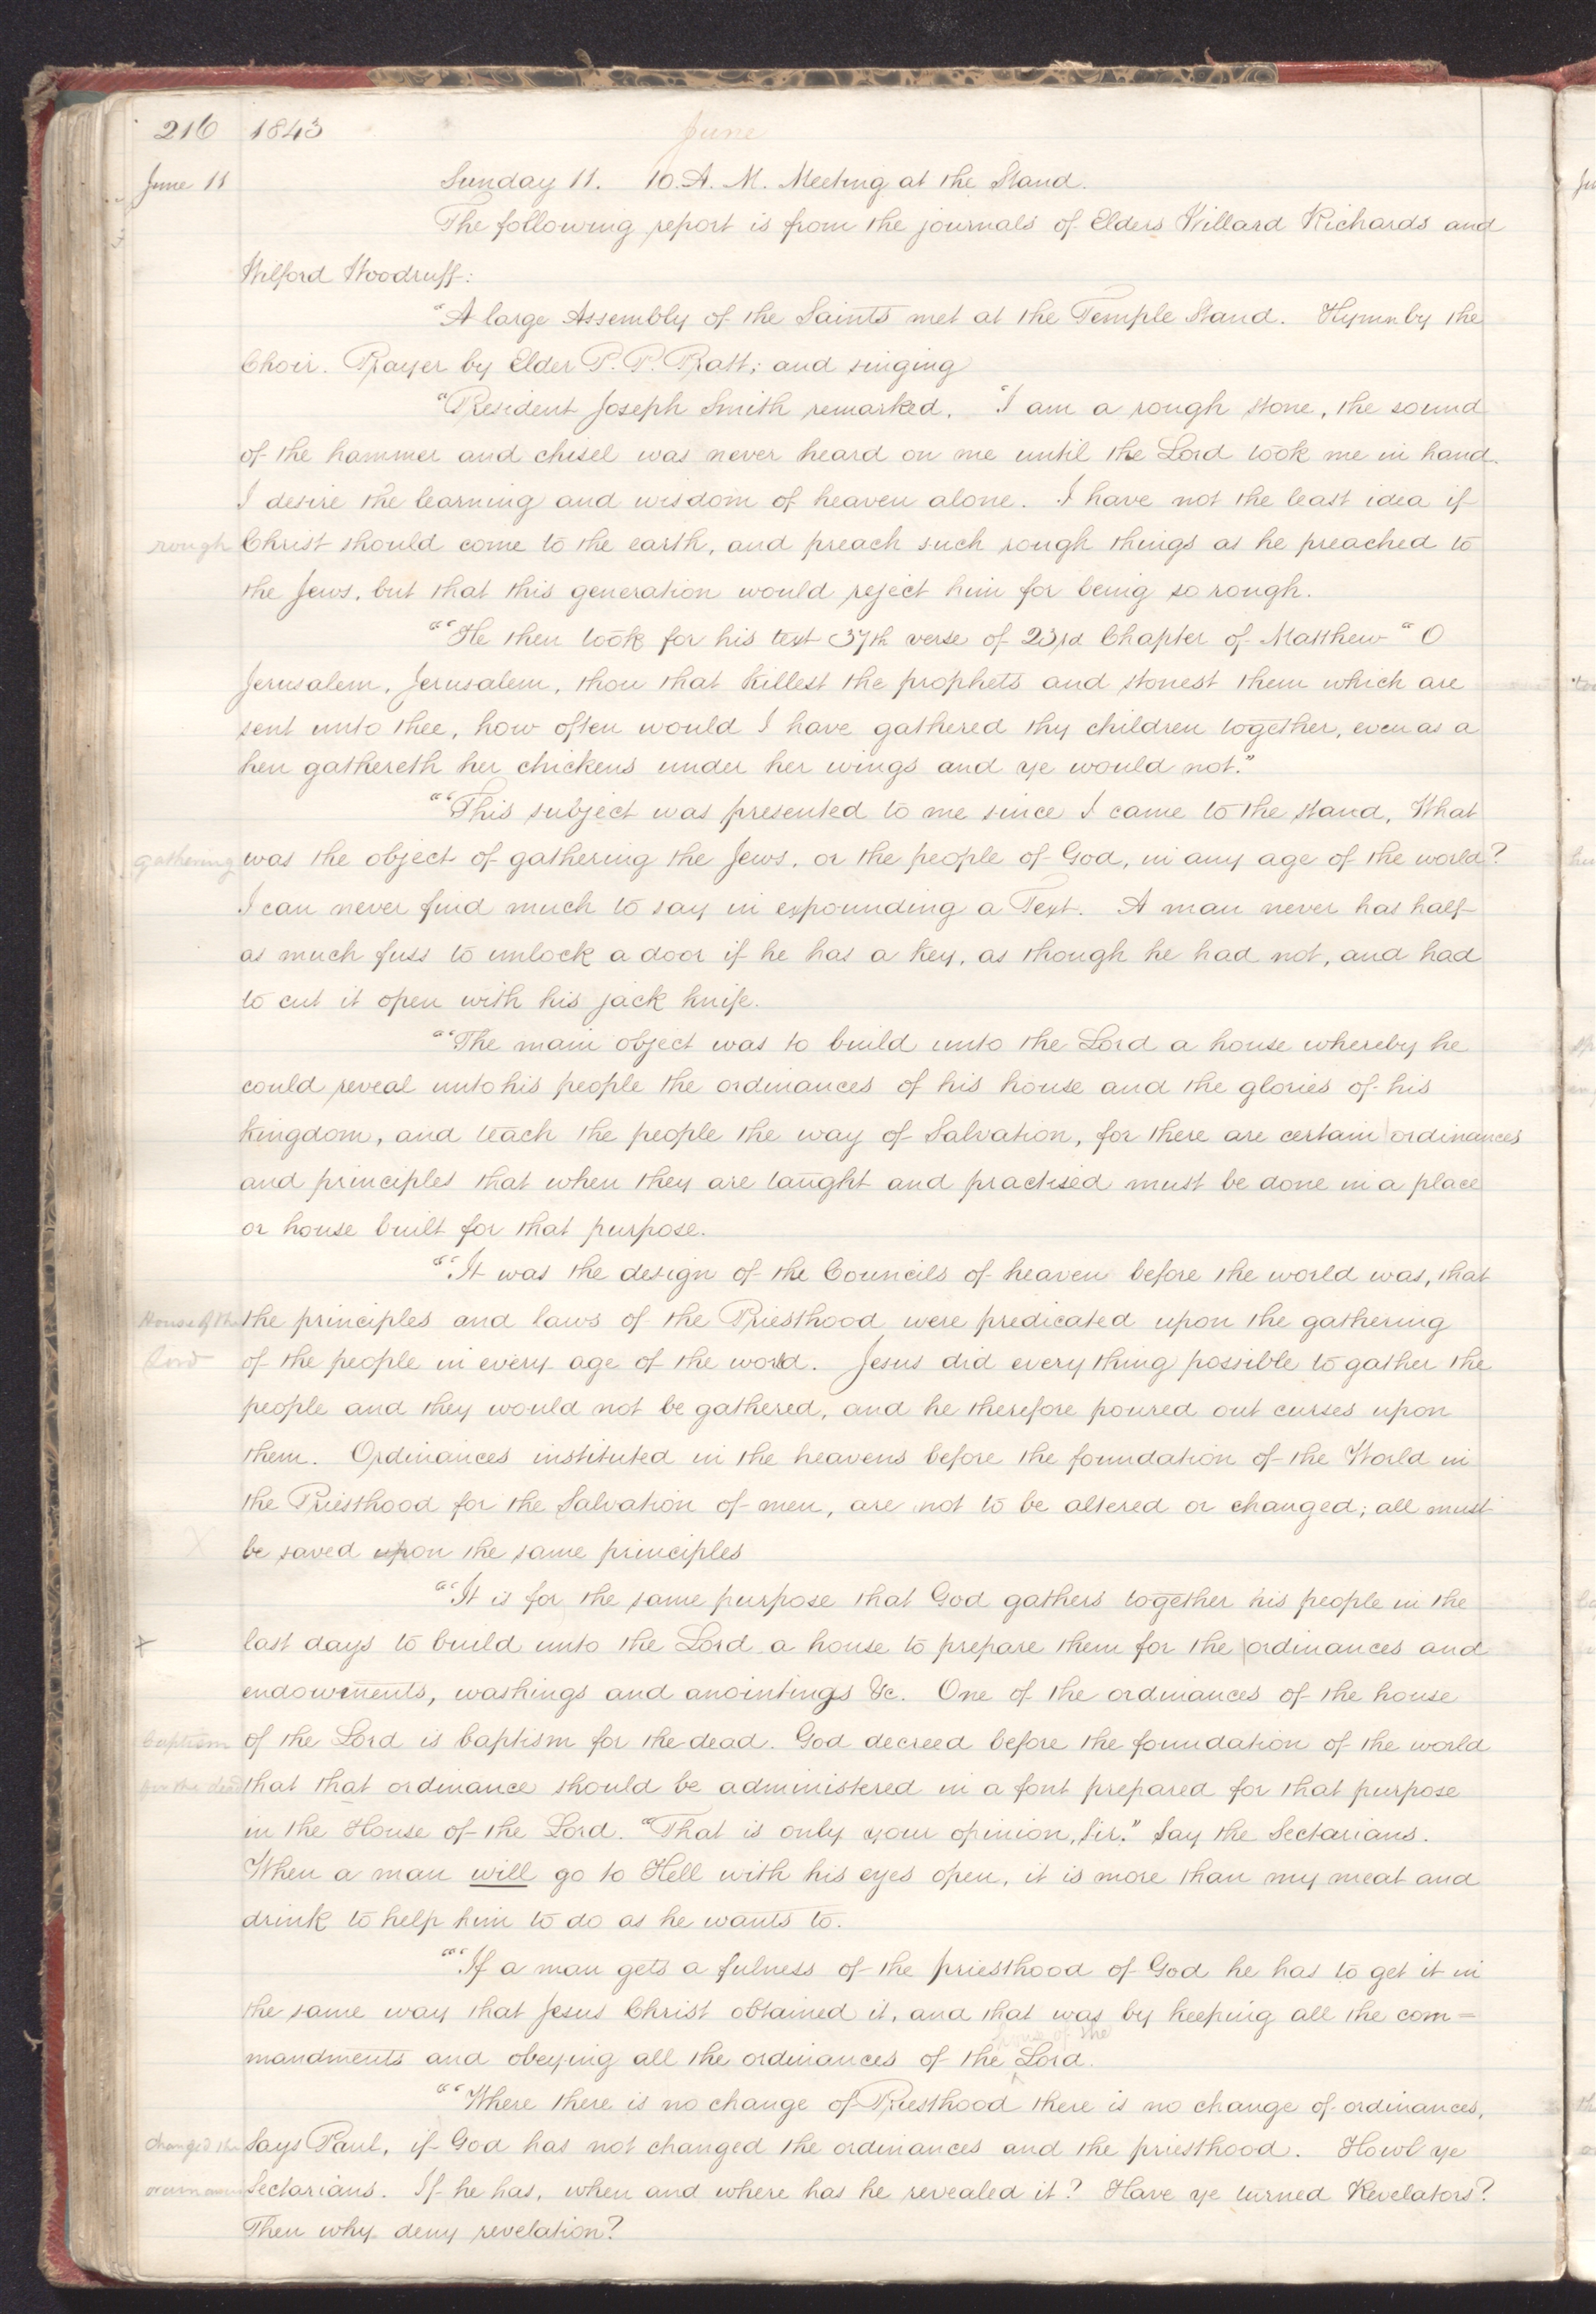 216 1843 June
June 11 Sunday 11. 10. A. M. Meeting at the Stand.
The following report is from the journals of Elders Willard Richards and
Wilford Woodruff:
"A large Assembly of the Saints met at the Temple Stand. Hymn by the
Choir. Prayer by Elder P. P. Pratt; and singing
"President Joseph Smith remarked. "I am a rough stone, the sound
of the hammer and chisel was never heard on me until the Lord took me in hand.
I desire the learning and wisdom of heaven alone. I have not the least idea if
rough Christ should come to the earth, and preach such rough things as he preached to
the Jews, but that this generation would reject him for being so rough.
"“He then took for his text 37th verse of 23rd Chapter of Matthew "O
Jerusalem, Jerusalem, thou that killest the prophets and stonest them which are
sent unto thee, how often would I have gathered thy children together, even as a
hen gathereth her chickens under her wings and ye would not."
"“This subject was presented to me since I came to the stand, What
gathering was the object of gathering the Jews, or the people of God, in any age of the world?
I can never find much to say in expounding a Text. A man never has half
as much fuss to unlock a door if he has a key, as though he had not, and had
to cut it open with his jack knife.
"“The main object was to build unto the Lord a house whereby he
could reveal unto his people the ordinances of his house and the glories of his
kingdom, and teach the people the way of Salvation, for there are certain ordinances
and principles that when they are taught and practised must be done in a place
or house built for that purpose.
"“It was the design of the Councils of heaven before the world was, that
House of the the principles and laws of the Priesthood were predicated upon the gathering
Lord of the people in every age of the world. Jesus did every thing possible to gather the
people and they would not be gathered, and he therefore poured out curses upon
them. Ordinances instituted in the heavens before the foundation of the World in
the Priesthood for the Salvation of men, are not to be altered or changed; all must
X be saved upon the same principles
"“It is for the same purpose that God gathers together his people in the
x last days to build unto the Lord a house to prepare them for the ordinances and
endowments, washings and anointings &c. One of the ordinances of the house
baptism of the Lord is baptism for the dead. God decreed before the foundation of the world
for the dead that that ordinance should be administered in a font prepared for that purpose
in the House of the Lord. "That is only your opinion, Sir." Say the Sectarians.
When a man will go to Hell with his eyes open, it is more than my meat and
drink to help him to do as he wants to.
"“If a man gets a fulness of the priesthood of God he has to get it in
the same way that Jesus Christ obtained it, and that was by keeping all the com=
house of the
mandments and obeying all the ordinances of the ^ Lord.
"“Where there is no change of Priesthood there is no change of ordinances,
changed the Says Paul, if God has not changed the ordinances and the priesthood. Howl ye
Sectarians. If he has, when and where has he revealed it? Have ye turned Revelators?
Then why deny revelation?